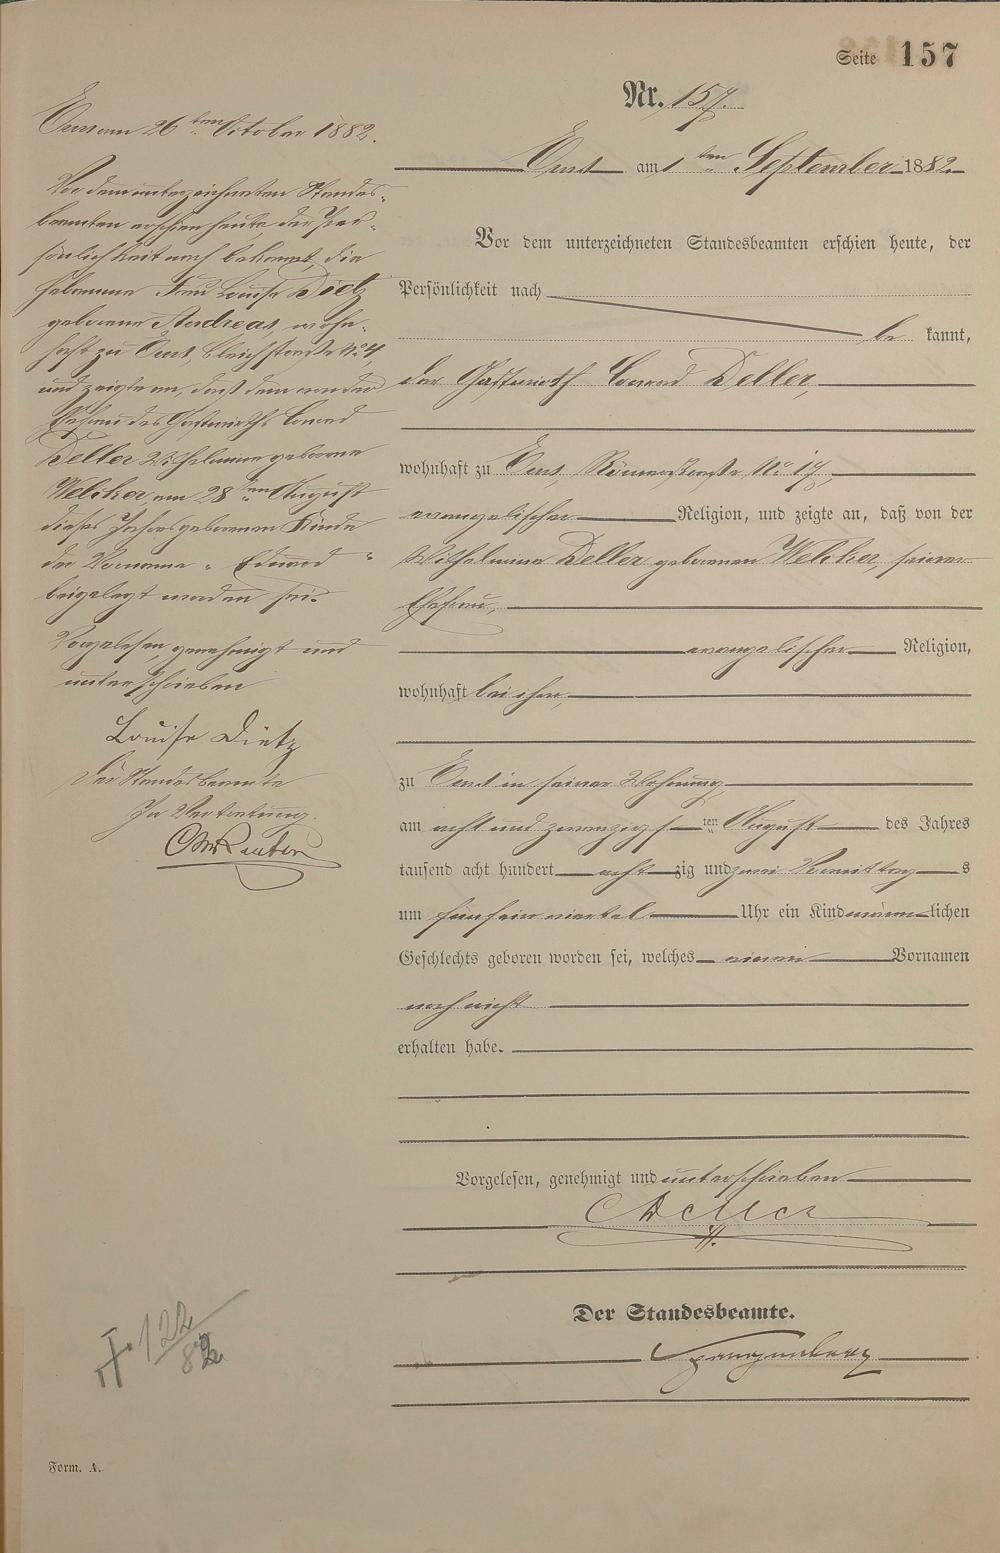 Seite 157
Nr. 157.
Ems am 1ten September 1882
Vor dem unterzeichneten Standesbeamten erschien heute, der
Persönlichkeit nach
be kannt,
der Gastwirth Conrad Deller,
wohnhaft zu Ems, Römerstraße No 17,
evangelischer Religion, und zeigte an, daß von der
Wilhelmine Deller geborenen Welcker, seiner
Ehefrau,
evangelischer Religion,
wohnhaft bei ihm,
zu Ems in seiner Wohnung
am acht und zwanzigs ten August des Jahres
tausend acht hundert acht zig und zwei Vormittag s
um fünf ein viertel Uhr ein Kind männ lichen
Geschlechts geboren worden sei, welches einen Vornamen
noch nicht
erhalten habe.
Vorgelesen, genehmigt und unterschrieben
C Deller
Der Standesbeamte.
Ems am 26ten October 1882.
Vor dem unterzeichneten Standes-
beamten erschien heute der Per-
sönlichkeit nach bekannt, die
Hebamme Frau Louise Dietz
geborene Andreas, wohn-
haft zu Ems, Bleichstraße No 4
und zeigte an, daß dem von der
Ehefrau des Gastwirths Conrad
Deller Wilhelmine geborene
Welcker, am 28ten August
dieses Jahres geborenen Kinde
der Vorname „Eduard“
beigelegt worden sei.
Vorgelesen, genehmigt und
unterschrieben
Louise Dietz
Der Standesbeamte
In Vertretung.
122
82
Form. A.